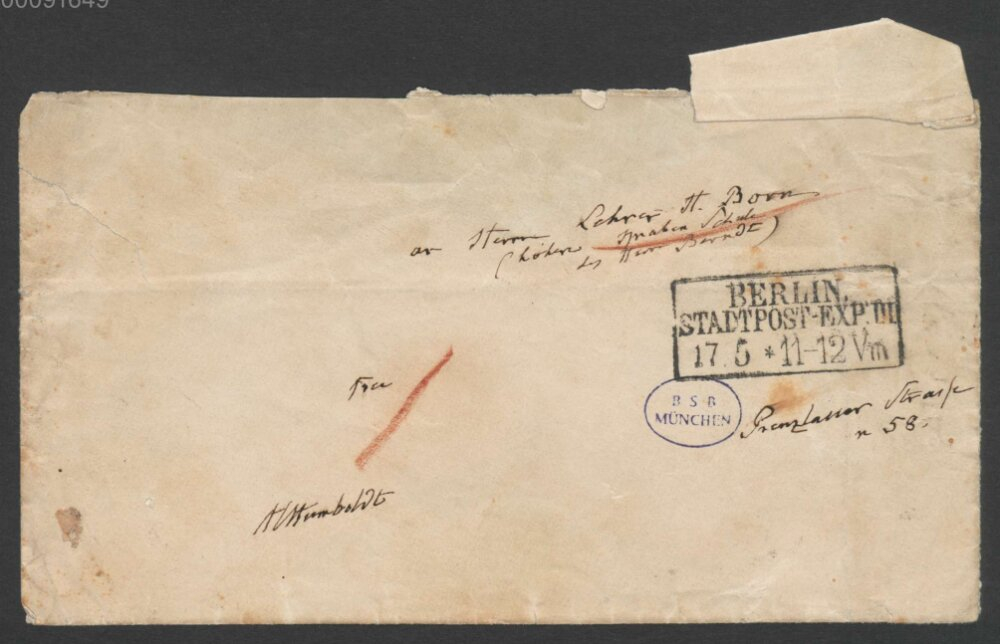 00091649
an Herrn Lehrer H. Born
(höhere Knaben Schule
des Herrn Berndt)
BERLIN.
STADTPOST-EXP. III
17 5 * 11-12 Vm
frei
B S B
MÜNCHEN
Prenzlauer Straße
n 58.
AlHumboldt